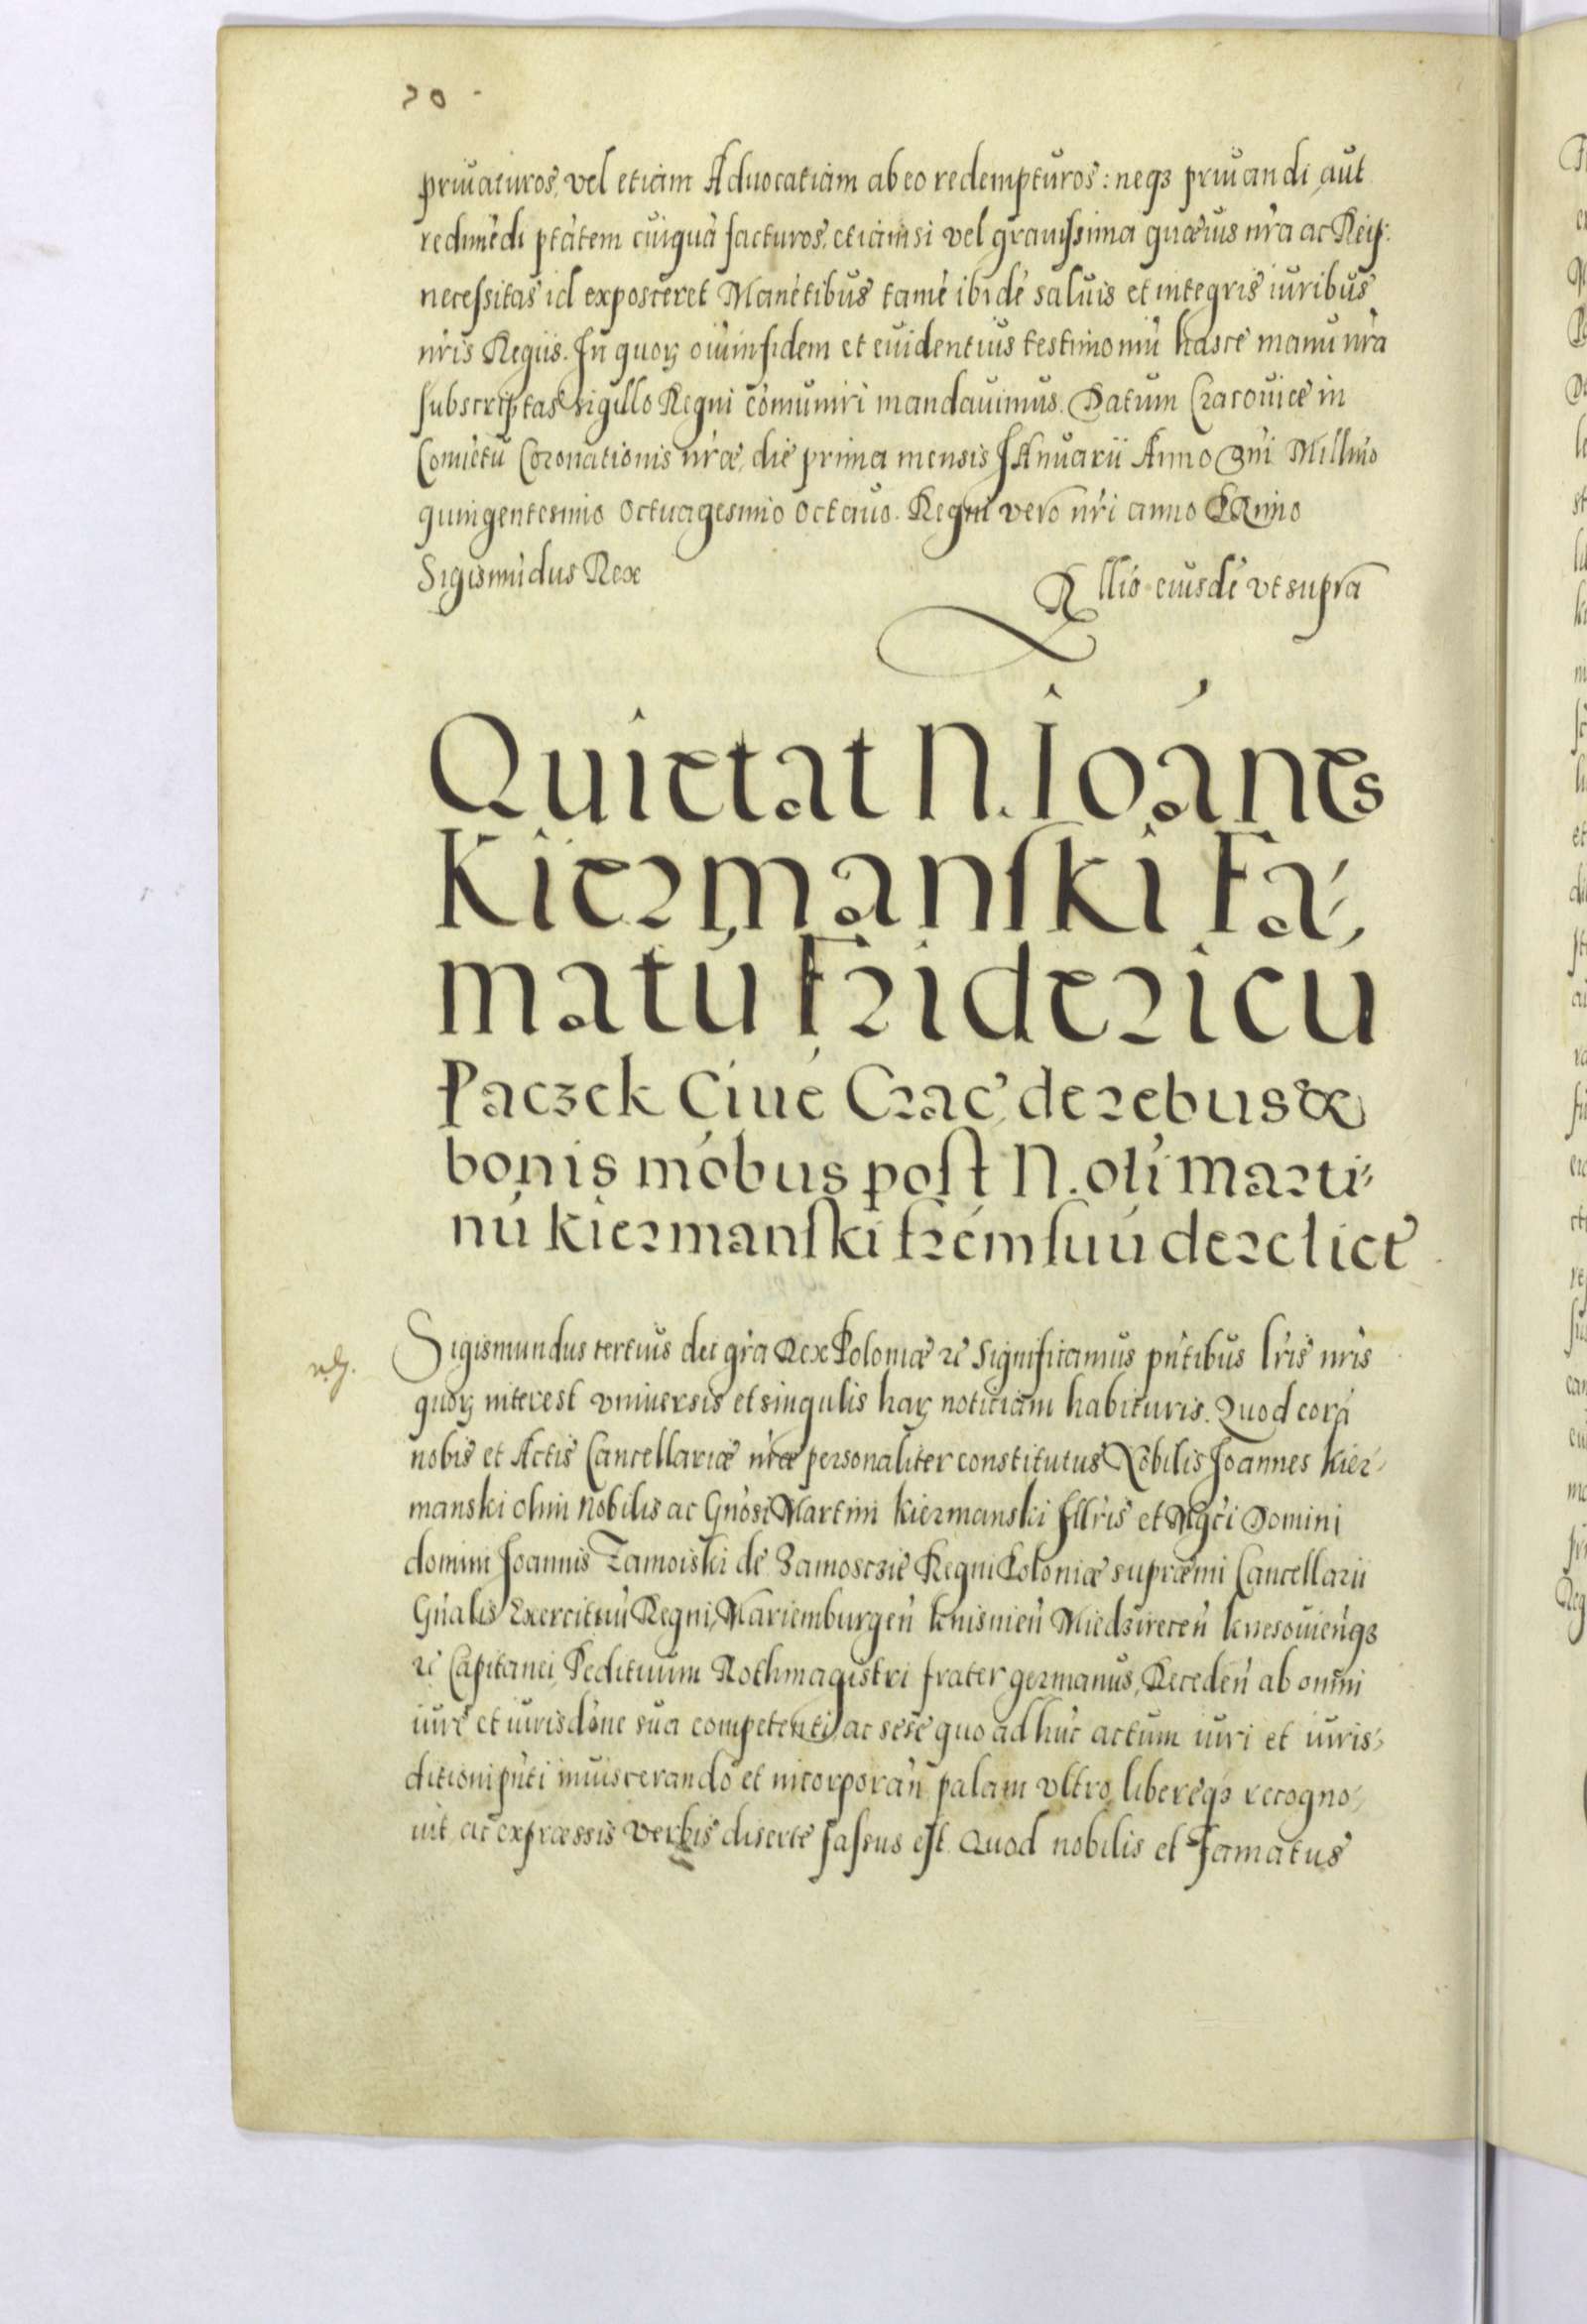 20
priuaturos, vel etiam Aduocatiam ab eo redempturos: neqꝫ priuandi, aut
redimēdi ptātem cuiquā facturos, etiamsi vel grauissima quæuis nr̄a ac Reip:
necessitas id exposceret Manētibus tamē ibidē saluis et integris iuribus
nr̄is Regiis. In quoꝝ oīum fidem et euidentius testimoniū hasce manu nr̄a
subscriptas sigillo Regni cōmuniri mandauimus. Datum Cracouiæ in
Comietu Coronationis nr̄æ, die prima mensis IAnuarii Anno Dnī Millmo
quingentesimo octuagesimo octauo. Regni vero nr̄i anno PRimo
Sigismūdus Rex
R llīo eiusdē vt supra
Quietat N. Ioánes
Kiermanski Fa-
matú Fridericu
Paczek Ciué Crac̄, de rebus &
bonis móbus post N. olí Marti-
nú Kiermanski frém suú derelict̄
Sigismundus tertius dei grā Rex Poloniæ ꝛc̄ Significamus pn̄tibus lr̄is nr̄is
quoꝝ interest vniuersis et singulis haꝝ notitiam habituris. Quod corā
nobis et Actis Cancellariæ nr̄æ personaliter constitutus Nobilis Joannes Kier-
manski olim Nobilis ac Gn̄osi Martini Kiermanski Illr̄is et Mgc̄i Domini
domini Joannis Zamoiski de Zamosczie Regni Poloniæ supræmi Cancellarii
Gn̄alis Exercituū Regni, Mariemburgen̄ Knisnien̄ Miedzirecen̄ Knesouien̄qꝫ
ꝛc̄ Capitanei Peditum Rothmagistri frater germanus, Receden̄ ab omni
iure et iurisdōne sua competenti, ac sese quo ad huc actum iuri et iuris-
ditioni pn̄ti inuiscerando et incorporan̄ palam vltro, libereqꝫ recogno-
uit, ac expræssis verbis diserte fassus est. Quod nobilis et Famatus